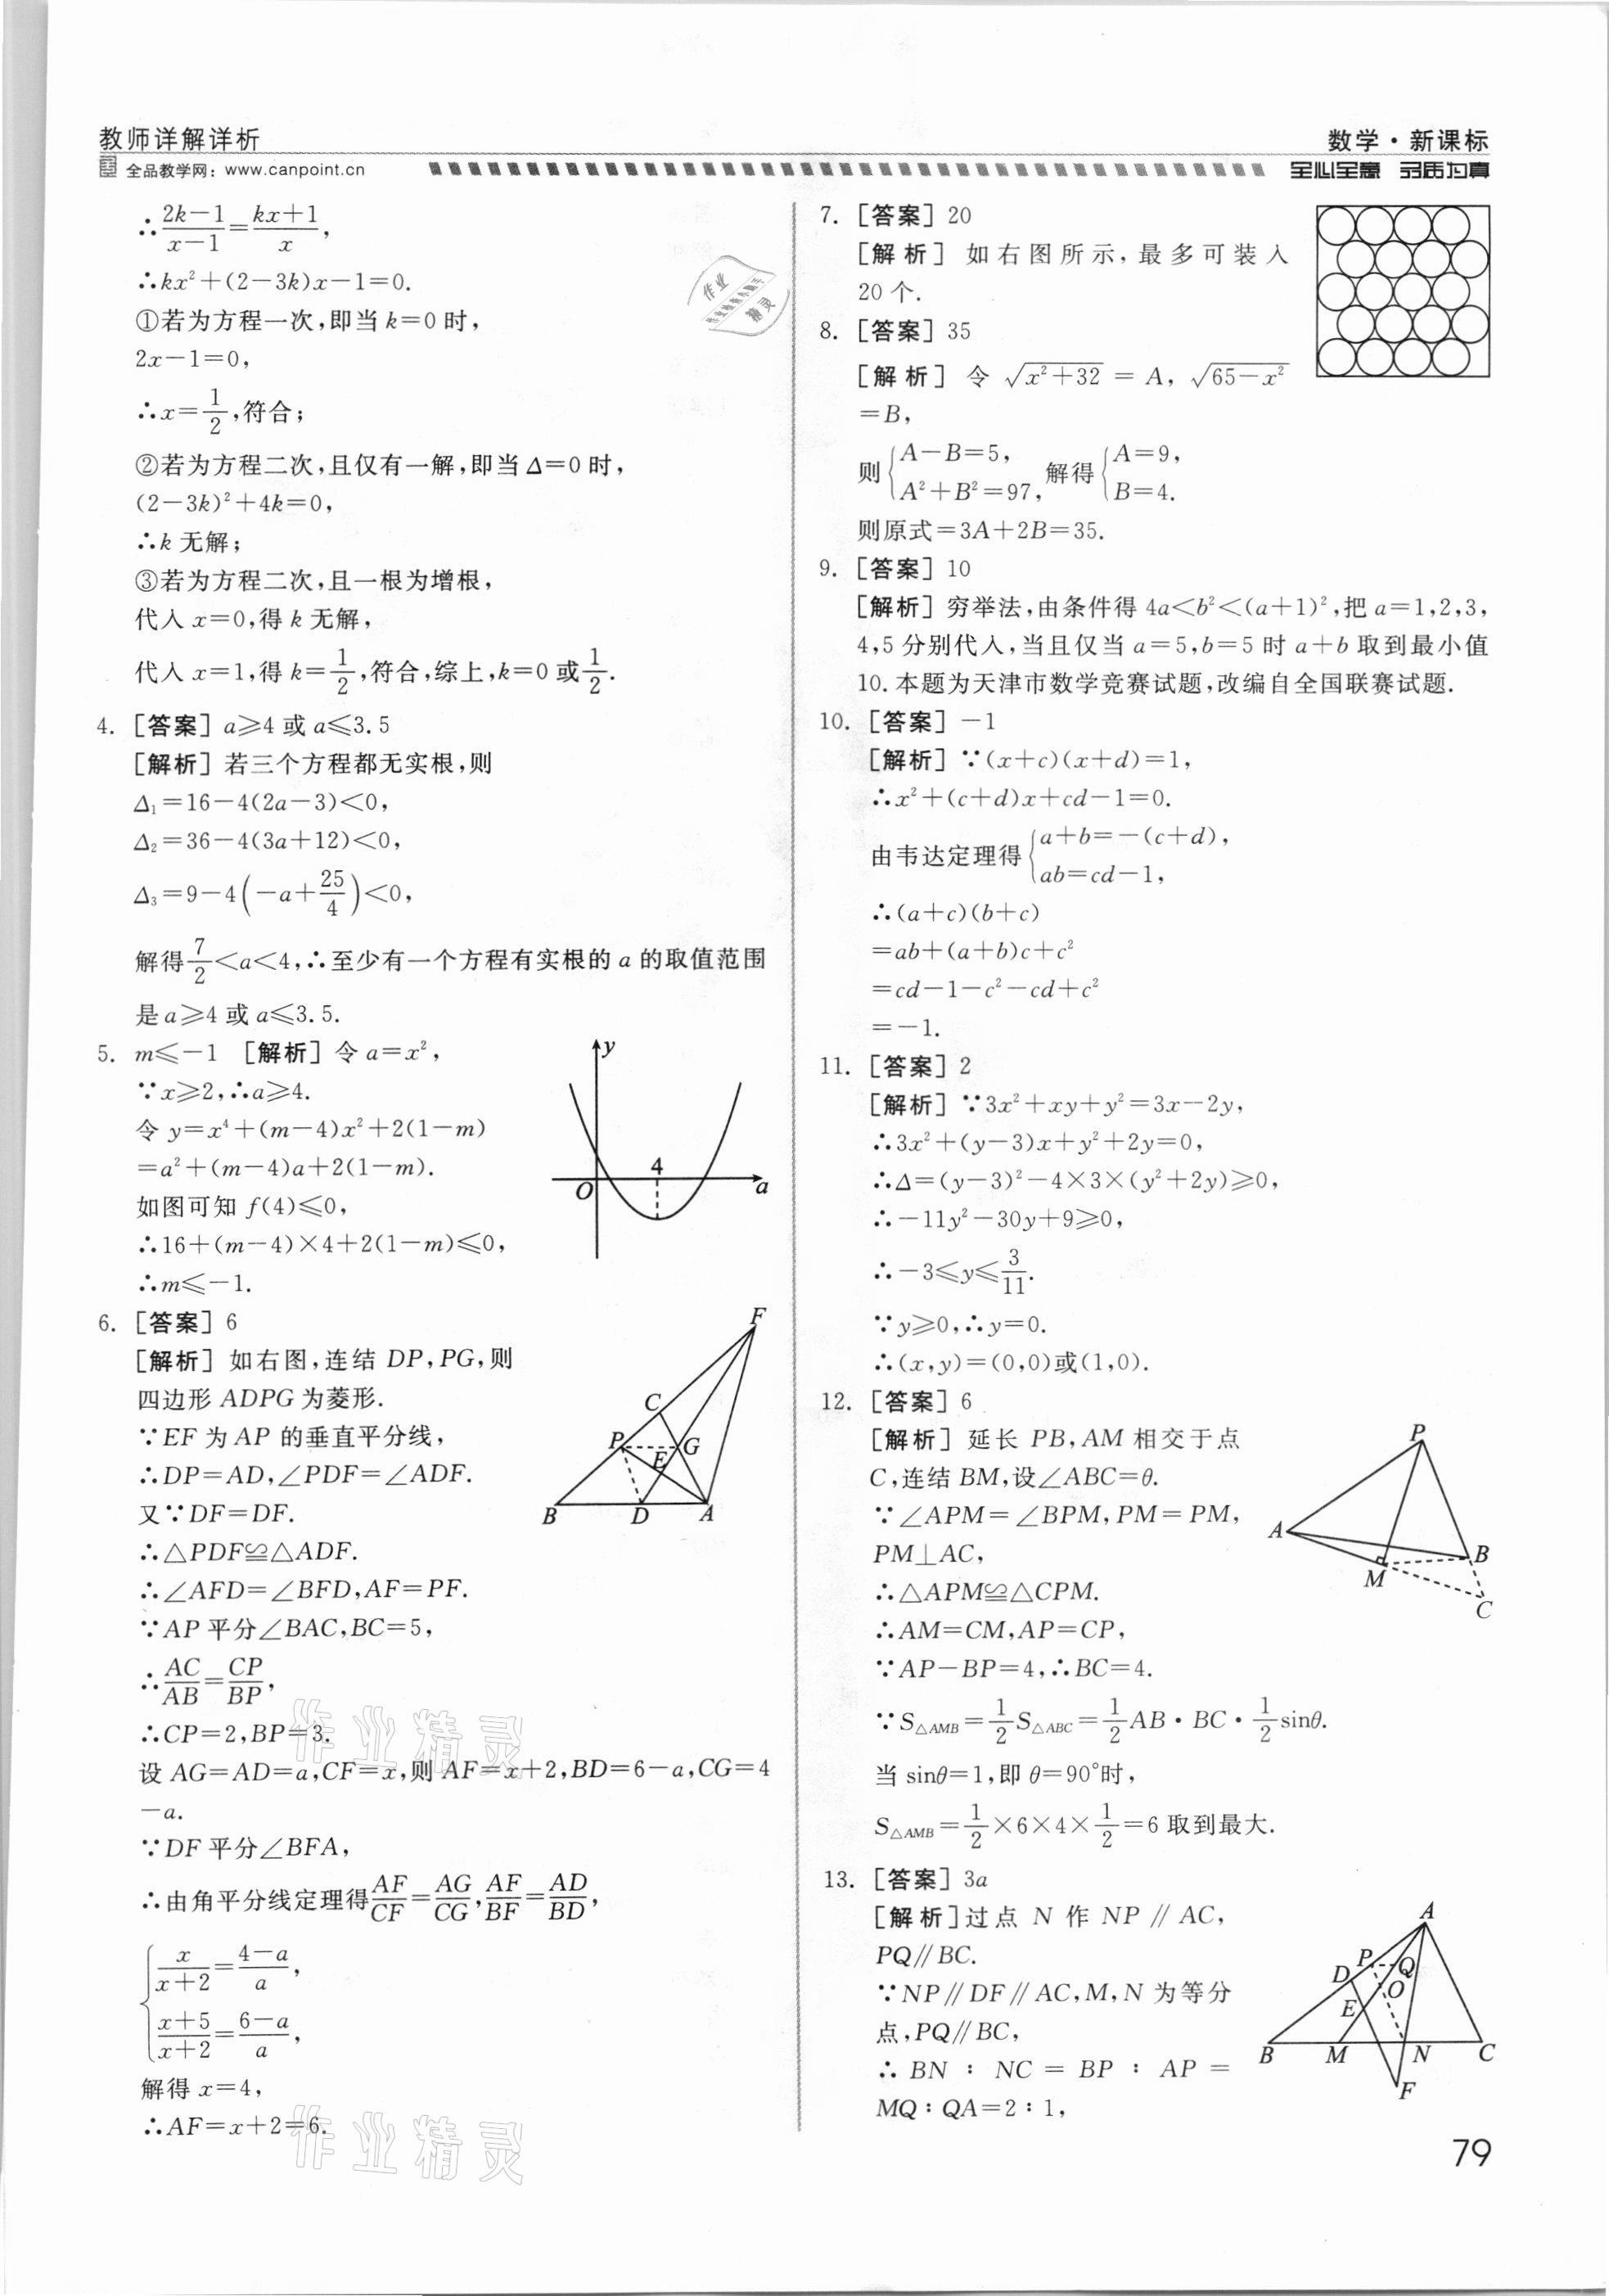 教师详解详析
数学·新课标
全品教学网：www.canpoint.cn
全心全意 品质为真
∴(2k－1)/(x－1)＝(kx＋1)/x，
∴kx²＋(2－3k)x－1＝0.
①若为方程一次，即当k＝0时，
2x－1＝0，
∴x＝1/2，符合；
②若为方程二次，且仅有一解，即当Δ＝0时，
(2－3k)²＋4k＝0，
∴k无解；
③若为方程二次，且一根为增根，
代入x＝0，得k无解，
代入x＝1，得k＝1/2，符合，综上，k＝0或1/2.
4. [答案] a≥4或a≤3.5
[解析] 若三个方程都无实根，则
Δ₁＝16－4(2a－3)＜0，
Δ₂＝36－4(3a＋12)＜0，
Δ₃＝9－4(－a＋25/4)＜0，
解得7/2＜a＜4，∴至少有一个方程有实根的a的取值范围
是a≥4或a≤3.5.
5. m≤－1 [解析] 令a＝x²，
∵x≥2，∴a≥4.
令y＝x⁴＋(m－4)x²＋2(1－m)
＝a²＋(m－4)a＋2(1－m).
如图可知f(4)≤0，
∴16＋(m－4)×4＋2(1－m)≤0，
∴m≤－1.
y
4
O
a
6. [答案] 6
[解析] 如右图，连结DP，PG，则
四边形ADPG为菱形.
∵EF为AP的垂直平分线，
∴DP＝AD，∠PDF＝∠ADF.
又∵DF＝DF.
∴△PDF≌△ADF.
∴∠AFD＝∠BFD，AF＝PF.
∵AP平分∠BAC，BC＝5，
∴AC/AB＝CP/BP，
∴CP＝2，BP＝3.
设AG＝AD＝a，CF＝x，则AF＝x＋2，BD＝6－a，CG＝4
－a.
∵DF平分∠BFA，
∴由角平分线定理得AF/CF＝AG/CG，AF/BF＝AD/BD，
x/(x＋2)＝(4－a)/a，
(x＋5)/(x＋2)＝(6－a)/a，
解得x＝4，
∴AF＝x＋2＝6.
F
C
P
G
E
B
D
A
作业精灵
作业精灵
作业
精灵
7. [答案] 20
[解析] 如右图所示，最多可装入
20个.
8. [答案] 35
[解析] 令√(x²＋32)＝A，√(65－x²)
＝B，
则{A－B＝5，A²＋B²＝97，解得{A＝9，B＝4.
则原式＝3A＋2B＝35.
9. [答案] 10
[解析] 穷举法，由条件得4a＜b²＜(a＋1)²，把a＝1，2，3，
4，5分别代入，当且仅当a＝5，b＝5时a＋b取到最小值
10.本题为天津市数学竞赛试题，改编自全国联赛试题.
10. [答案] －1
[解析] ∵(x＋c)(x＋d)＝1，
∴x²＋(c＋d)x＋cd－1＝0.
由韦达定理得{a＋b＝－(c＋d)，ab＝cd－1，
∴(a＋c)(b＋c)
＝ab＋(a＋b)c＋c²
＝cd－1－c²－cd＋c²
＝－1.
11. [答案] 2
[解析] ∵3x²＋xy＋y²＝3x－2y，
∴3x²＋(y－3)x＋y²＋2y＝0，
∴Δ＝(y－3)²－4×3×(y²＋2y)≥0，
∴－11y²－30y＋9≥0，
∴－3≤y≤3/11.
∵y≥0，∴y＝0.
∴(x，y)＝(0，0)或(1，0).
12. [答案] 6
[解析] 延长PB，AM相交于点
C，连结BM，设∠ABC＝θ.
∵∠APM＝∠BPM，PM＝PM，
PM⊥AC，
∴△APM≌△CPM.
∴AM＝CM，AP＝CP，
∵AP－BP＝4，∴BC＝4.
∵S△AMB＝1/2S△ABC＝1/2AB·BC·1/2sinθ.
当sinθ＝1，即θ＝90°时，
S△AMB＝1/2×6×4×1/2＝6取到最大.
P
A
B
M
C
13. [答案] 3a
[解析] 过点N作NP∥AC，
PQ∥BC.
∵NP∥DF∥AC，M，N为等分
点，PQ∥BC，
∴BN：NC＝BP：AP＝
MQ：QA＝2：1，
A
P
Q
D
O
E
B
M
N
C
F
79